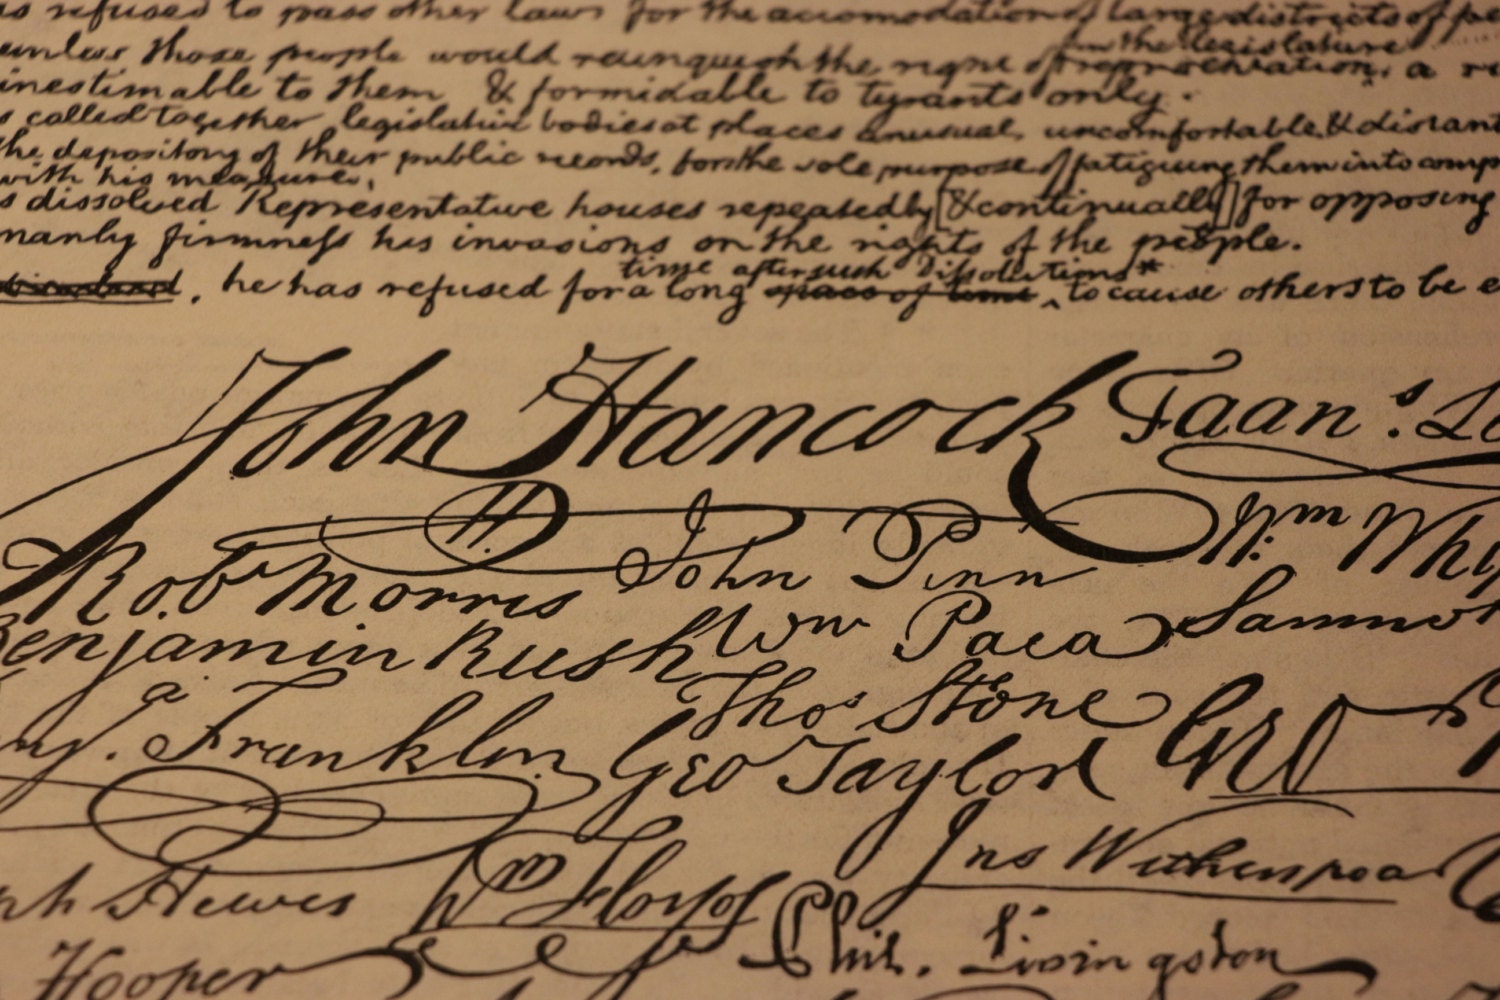 as refused to pass other laws for the accomodation of large districts of pe
in the legislature
unless those people would relinquish the right of representation, a ri
inestimable to them & formidable to tyrants only.
s called together legislative bodies at places unusual, uncomfortable & distant
the depository of their public records, for the sole purpose of fatiguing them into comp
with his measures.
s dissolved Representative houses repeatedly [& continually] for opposing
manly firmness his invasions on the rights of the people.
time after such Dissolutions*
, he has refused for a long space of time ^ to cause others to be e
John Hancock Faan.s Li
H.
Robt Morris John Penn Wm Whip
Benjamin Rush Wm Paca Saml
Thos Stone
a Franklin Geo Taylor Geo
ph Hewes Wm Floyd Jno Witherspoo
Hooper Phil. Livingston